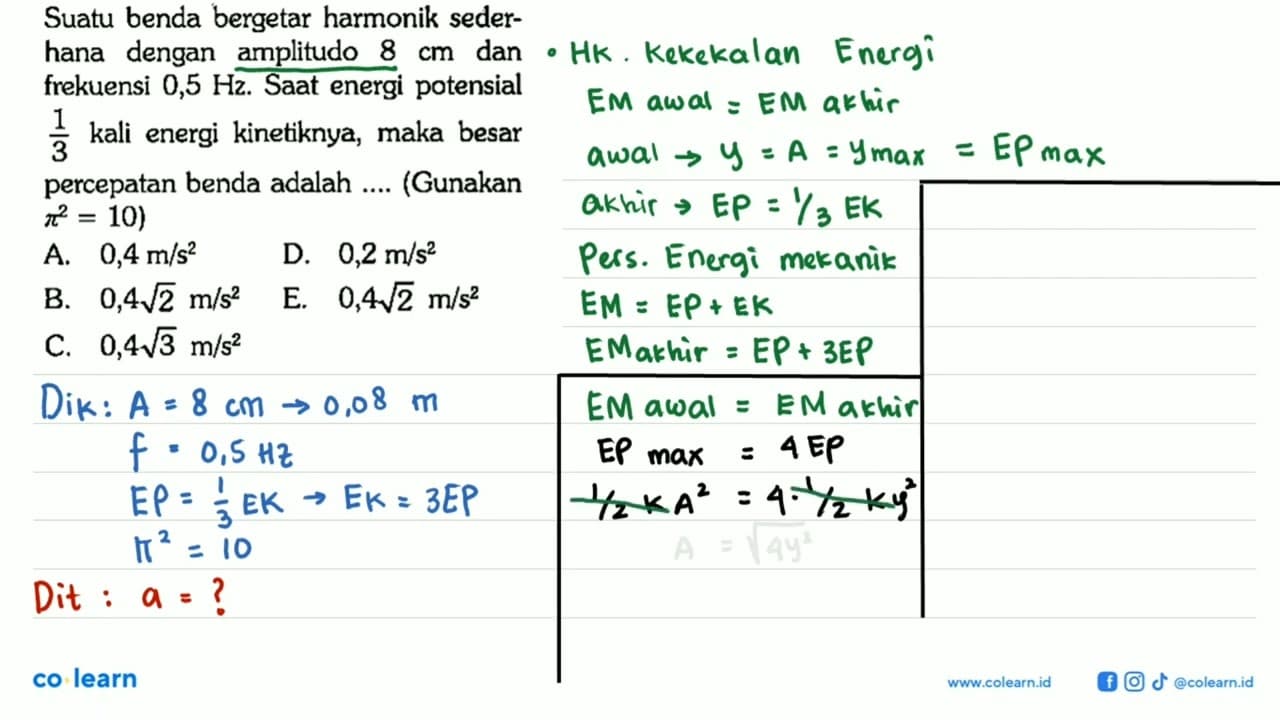 Suatu benda bergetar harmonik seder-
hana dengan amplitudo 8 cm dan
frekuensi 0,5 Hz. Saat energi potensial
1/3 kali energi kinetiknya, maka besar
percepatan benda adalah .... (Gunakan
π² = 10)
A. 0,4 m/s² D. 0,2 m/s²
B. 0,4√2 m/s² E. 0,4√2 m/s²
C. 0,4√3 m/s²
Dik: A = 8 cm → 0,08 m
f = 0,5 Hz
EP = 1/3 EK → EK = 3EP
π² = 10
Dit : a = ?
• HK. Kekekalan Energi
EM awal = EM akhir
awal → y = A = ymax = EP max
akhir → EP = 1/3 EK
Pers. Energi mekanik
EM = EP + EK
EM akhir = EP + 3EP
EM awal = EM akhir
EP max = 4 EP
1/2 K A² = 4 . 1/2 K y²
A = √4y²
co learn
www.colearn.id
@colearn.id